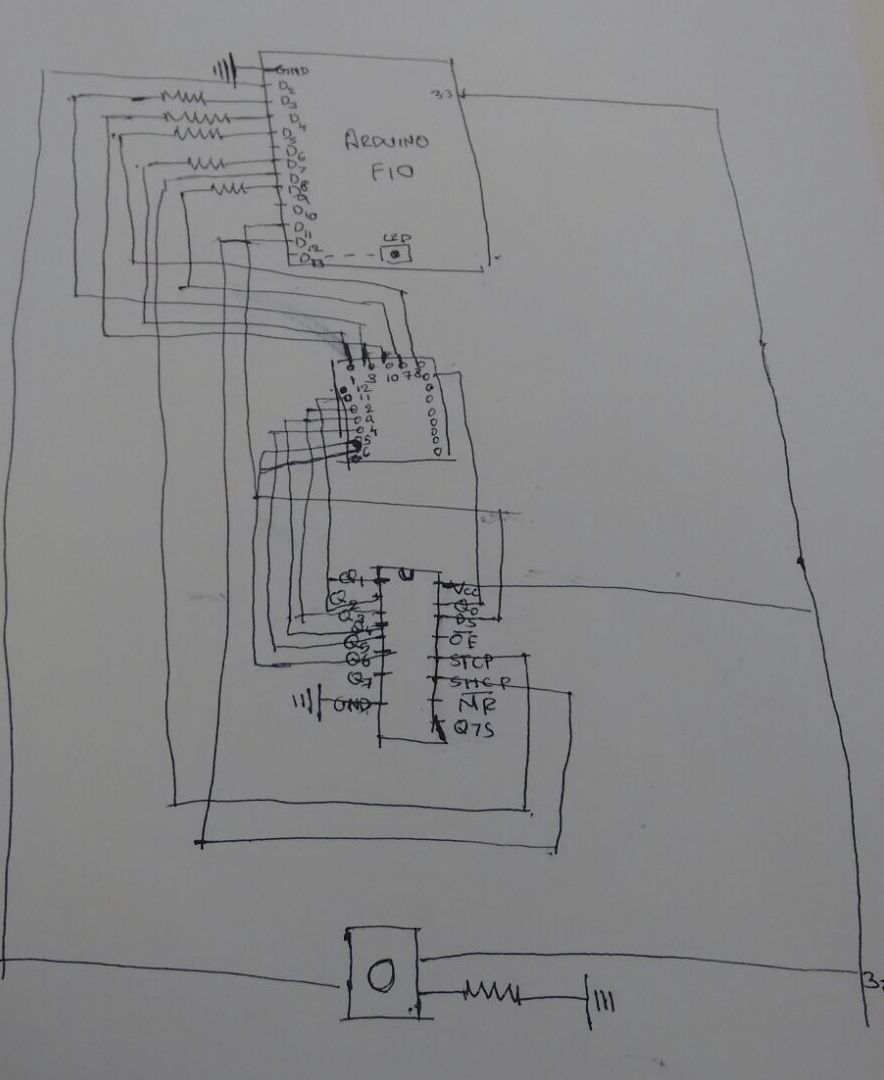 GND
D2
D3
D4
D5
D6
D7
D8
D
D
D11
D12
D13
3.3
ARDUINO
FIO
LED
1 3 10 7 8
12
11
2
9
4
5
6
Q1
Q2
Q3
Q4
Q5
Q6
Q7
GND
Vcc
Q0
DS
OE
STCP
SHCP
MR
Q7S